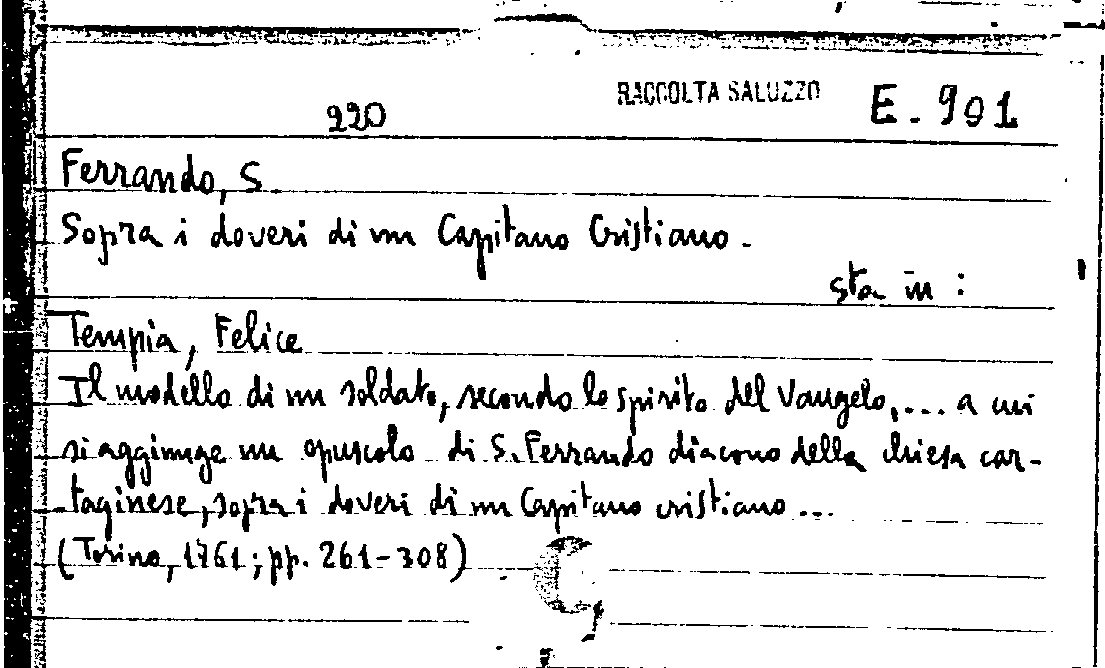 220 RACCOLTA SALUZZO E. 901
Ferrando, S.
Sopra i doveri di un Capitano Cristiano.
sta in :
Tempia, Felice
Il modello di un soldato, secondo lo spirito del Vangelo,... a cui
si aggiunge un opuscolo di S. Ferrando diacono della chiesa car-
taginese, sopra i doveri di un Capitano cristiano...
(Torino, 1761; pp. 261-308)